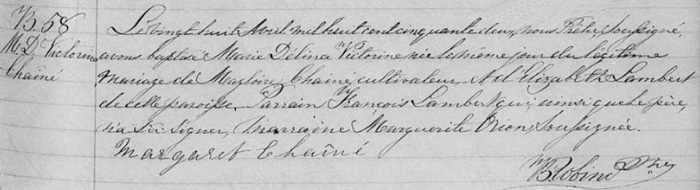 B. 58
M. D. Victorine
Chaîné
Le vingt huit Avril mil huit cent cinquante deux, nous Prêtre soussigné,
avons baptisé Marie Délina Victorine née le même jour du légitime
mariage de Magloire Chaîné, cultivateur, & d'Elizabeth Lambert
de cette paroisse. Parrain François Lambert qui, ainsi que le père,
n'a su signer, marraine Marguerite soussignée.
Margaret Chaîné
Ptre